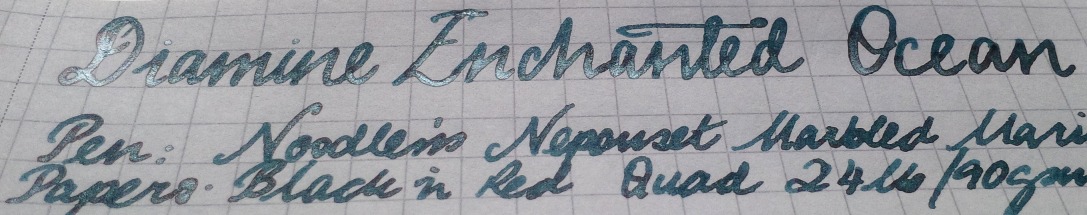 Diamine Enchanted Ocean
Pen: Noodler's Neponset Marbled Mari
Paper: Black n Red Quad 24lb/90gsm